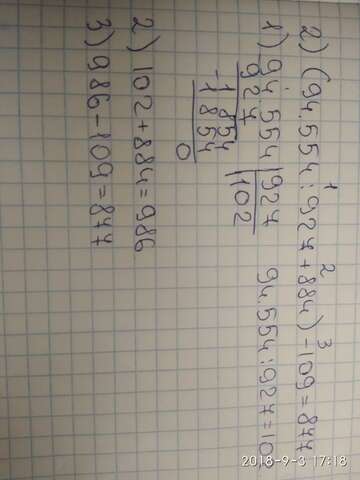 2) (94.554:924+884)-109=877
1) 94.554 |924   94.554:924=102
924   |102
-1854
1854
0
2) 102+884=986
3) 986-109=877
1 2 3
2018-9-3 17:18